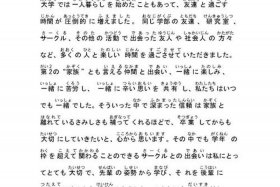 大学では一人暮らしを始めたこともあって、友達と過ごす
時間が圧倒的に増えました。同じ学部の友達、研究室、
サークル、その他の活動で出会った友人や社会人の方々
など、多くの人と楽しい時間を過ごさせていただきました。
第2の“家族”とも言える仲間と出会い、一緒に楽しみ、
一緒に苦労し、一緒に辛い思いを共有し、私たちはいつ
も一緒でした。そういった中で深まった信頼は家族と
離れているさみしさも補ってくれるほどで、卒業してから
大切にしていきたいと、心から思います。その中でも学年の
枠を超えて関わることのできるサークルとの出会いは私にとっ
てとても大切で、先輩の姿勢から学び、それを後輩に